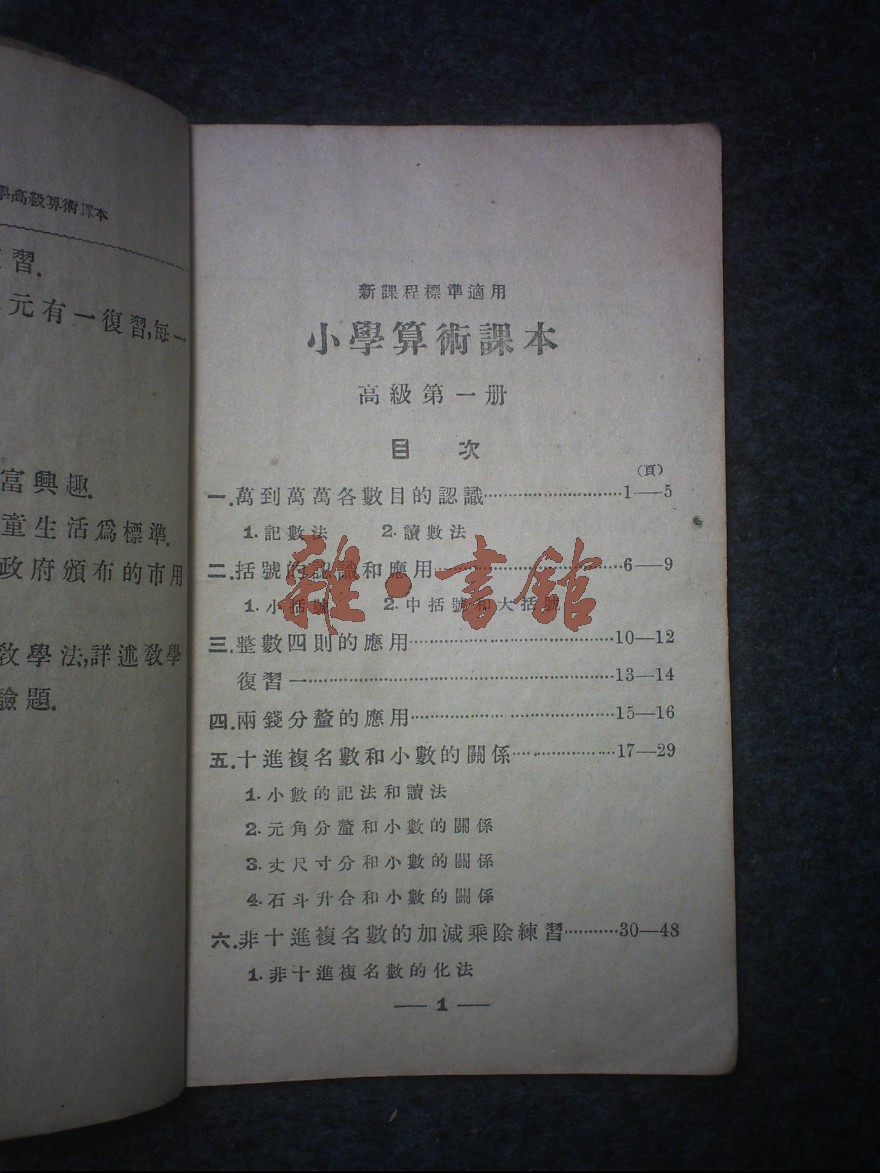 學高級算術課本
習.
元有一復習,每一
富興趣.
童生活爲標準.
政府頒布的市用
敎學法,詳述敎學
驗題.
新課程標準適用
小學算術課本
高級第一册
目 次
(頁)
一.萬到萬萬各數目的認識……………………1—5
1.記數法 2.讀數法
二.括號的認識和應用……………………6—9
1.小括號 2.中括號和大括號
三.整數四則的應用……………………10—12
復習一……………………13—14
四.兩錢分釐的應用……………………15—16
五.十進複名數和小數的關係……………17—29
1.小數的記法和讀法
2.元角分釐和小數的關係
3.丈尺寸分和小數的關係
4.石斗升合和小數的關係
六.非十進複名數的加減乘除練習………30—48
1.非十進複名數的化法
— 1 —
雜·書館